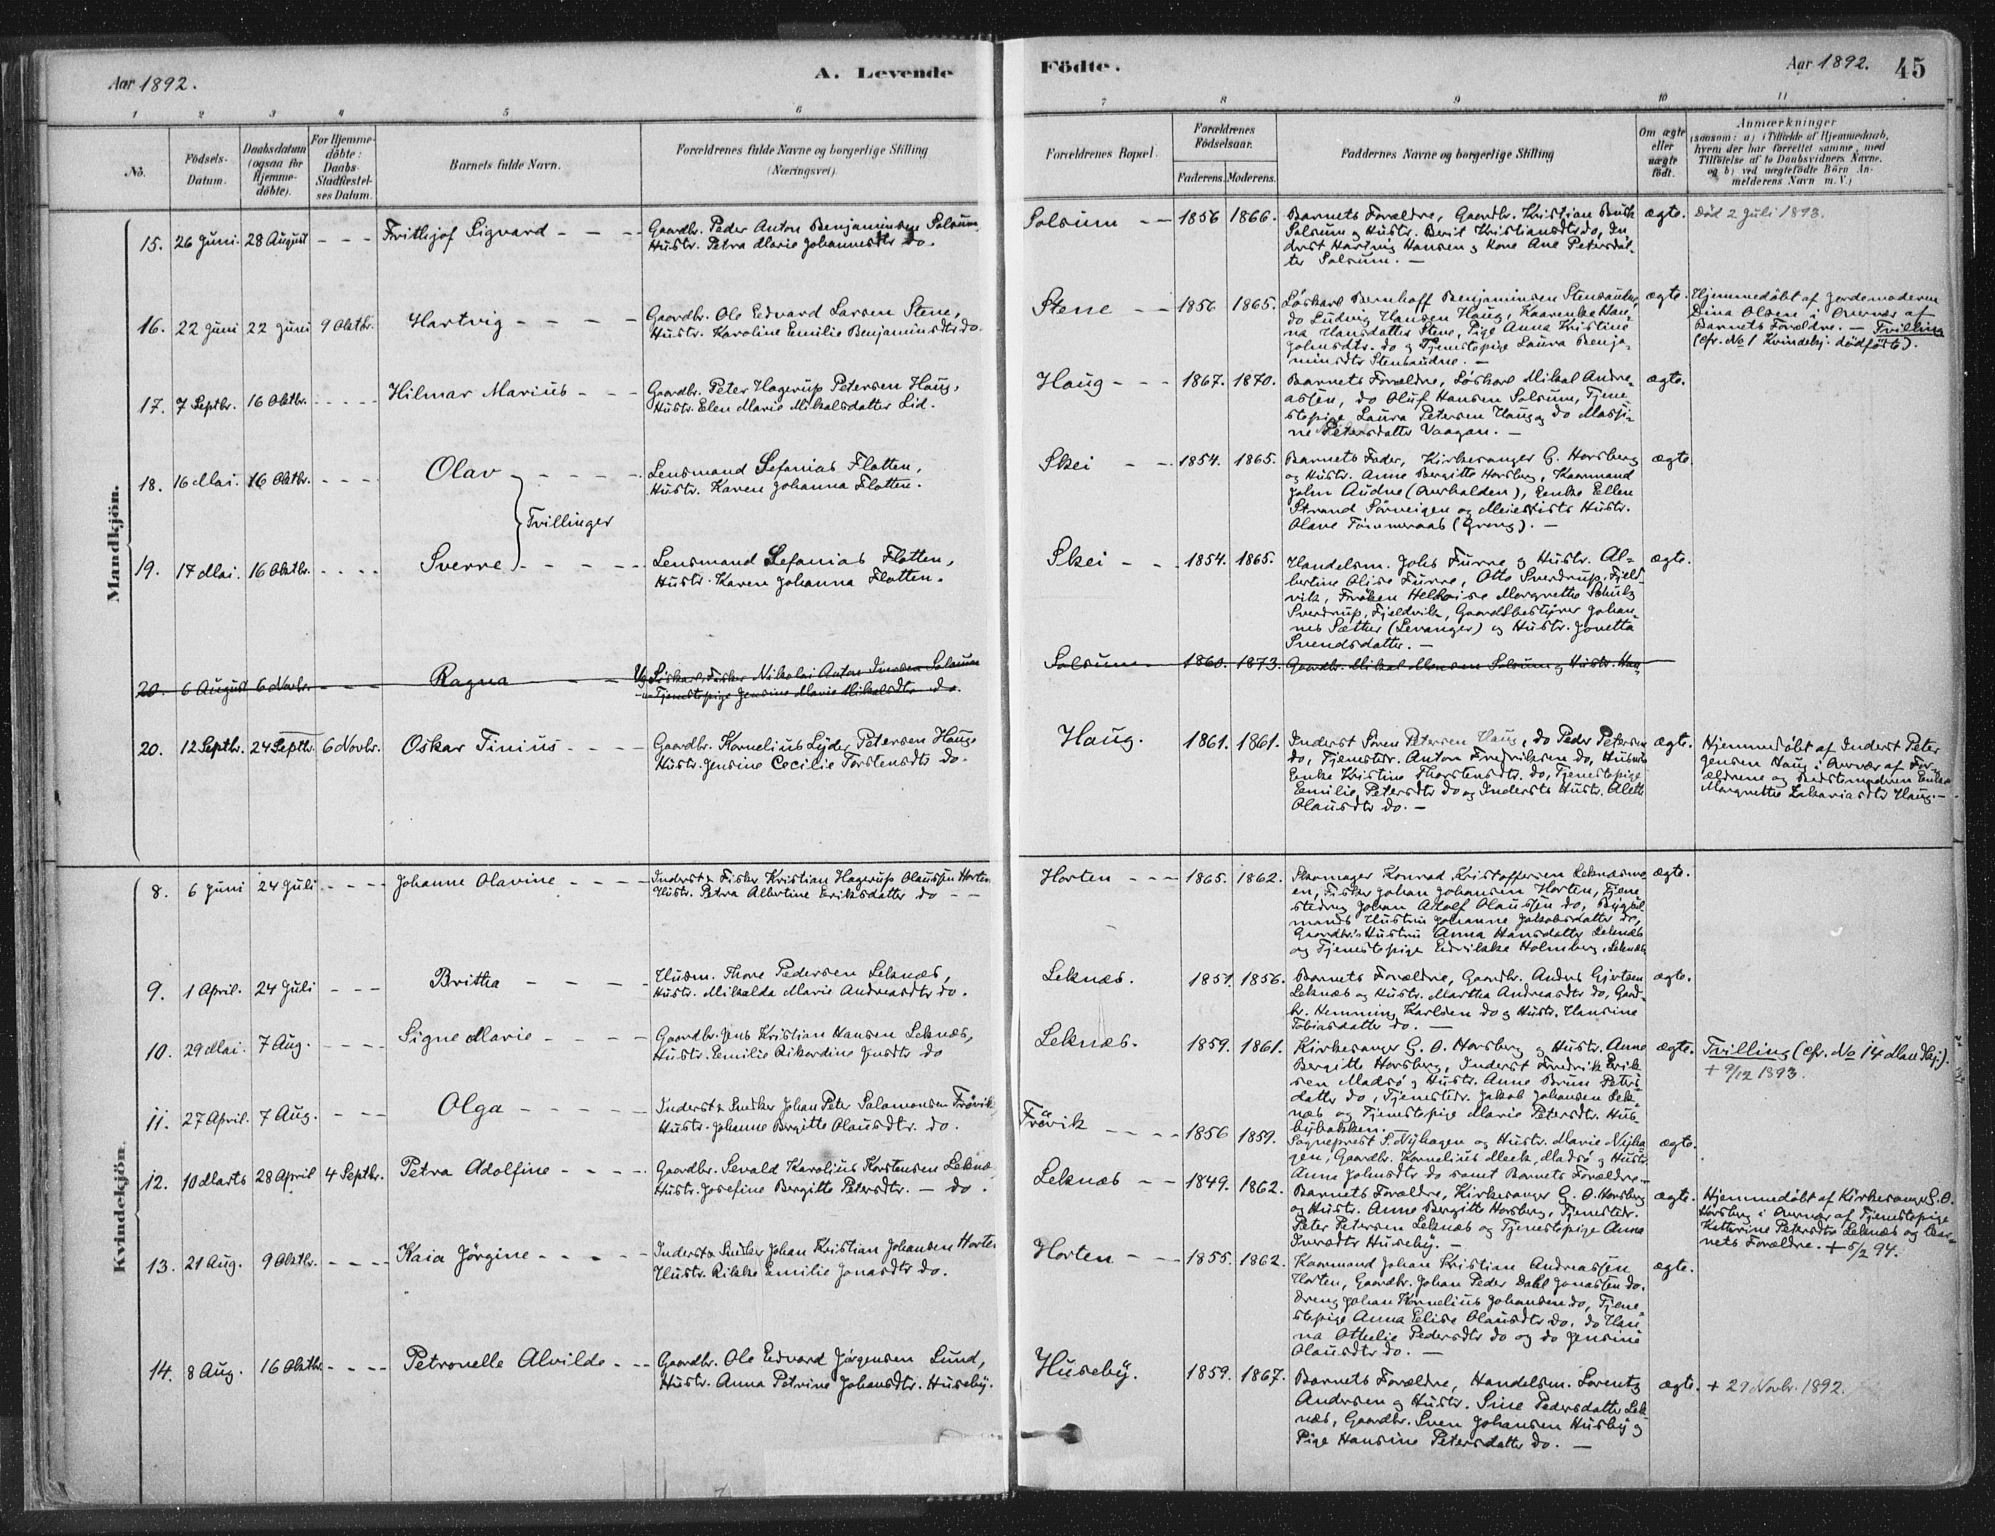 Aar 1892.
A. Levende
Födte.
Aar 1892.
45
1 2 3 4 5 6 7 8 9 10 11
No.
Födsels-
Datum.
Daabsdatum
(ogsaa for
Hjemme-
döbte).
For Hjemme-
döbte:
Daabs-
Stadfæstel-
ses Datum.
Barnets fulde Navn.
Forældrenes fulde Navne og borgerlige Stilling
(Næringsvei).
Forældrenes Bopæl.
Forældrenes
Födselsaar.
Faderens. Moderens.
Faddernes Navne og borgerlige Stilling
Om ægte
eller
uægte
födt.
Anmærkninger
(saasom: a) i Tilfælde af Hjemmedaab,
hvem der har forrettet samme, med
Tilföielse af to Daabsvidners Navne,
og b) ved uægtefödte Börn An-
melderens Navn m. V.)
Mandkjön.
15. 26 Juni. 28 August - - - Frithjof Sigvard - - -
Gaardbr. Peder Anton Benjaminsen Solsum
Hustr. Petra Marie Johannesdtr do.
Solsum - - 1856 1866.
Barnets Forældre, Gaardbr. Kristian Buch
Solsum og Hustr. Berit Kristiansdtr do, In-
derst Hartvig Hansen og Kone Ane Petersdat-
ter Solsum. -
ægte. Död 2 Juli 1893.
16. 22 Juni 22 Juni 9 Oktbr. Hartvig - - - -
Gaardbr. Ole Edvard Larsen Stene,
Hustr. Karoline Emilie Benjaminsdtr do.
Stene - - 1856 1865.
Löskarl Bernhoff Benjaminsen Stensaudne,
do Ludvig Hansen Haug, Kaarenke Han-
na Hansdatter Stene, Pige Anna Kristine
Johnsdtr. do og Tjenestepige Laura Benja-
minsdtr Stensaudne. -
ægte. Hjemmedöbt af Jordemoderen
Dina Olsen i Overvær af
Barnets Forældre. - Tvilling
(cfr. No 1 Kvindekj. dödfödte).
17. 7 Septbr. 16 Oktbr. - - - - Hilmar Marius - - -
Gaardbr. Peter Hagerup Petersen Haug,
Hustr. Elen Marie Mikalsdatter Lid.
Haug - - - 1867. 1870.
Barnets Forældre, Löskarl Mikal Andre-
assen, do Oluf Hansen Solsum, Tjene-
stepige Laura Petersen Haug og do Massi-
ne Petersdatter Vaagan. -
ægte.
18. 16 Mai. 16 Oktbr. - - - - Olav - - - - -
Lensmand Sefanias Flotten,
Hustr. Karen Johanna Flotten.
Skei - - 1854. 1865.
Barnets Fader, Kirkesanger G. Horsberg
og Hustr. Anne Bergitte Horsberg, Kaarmand
John Audne (Overhalden), Enke Ellen
Strand Sörveigen og Meierists Hustr.
Olave Tömmeraas (Grong). -
ægte.
Tvillinger
19. 17 Mai. 16 Oktbr. - - - - Sverre - - - - -
Lensmand Sefanias Flotten,
Hustr. Karen Johanna Flotten.
Skei - - 1854. 1865.
Handelsm. Johs Furre og Hustr. Al-
bertine Olise Furre, Otto Sverdrup, Fjeld-
vik, Fröken Helloise Margrethe Schulz
Sverdrup, Fjeldvik, Gaardsbestyrer Johan-
nes Sætter (Levanger) og Hustr. Jonetta
Svendsdatter. -
ægte.
20. 6 August 6 Novbr. - - - Ragna - -
Ug. Löskarl Fisker Nikolai Anton Iversen Solsum
Tjenestepige Jensine Marie Mikalsdtr do.
Solsum 1860. 1873. Gaardbr. Mikal Monsen Solsum og Hustr. Han-
20. 12 Septbr. 24 Septbr. 6 Novbr. Oskar Tinius - - - -
Gaardbr. Kornelius Lyder Petersen Haug,
Hustr. Jensine Cecilie Torstensdtr do.
Haug. 1861. 1861.
Inderst Sören Petersen Haug, do Peder Petersen
do, Tjenestedr. Anton Fredriksen do, Husm's
Enke Kristine Thorstensdtr. do, Tjenestepige
Emilie Petersdtr do og Inderst's Hustr. Aleth
Olausdtr do. -
ægte. Hjemmedöbt af Inderst Peter
Jensen Haug i Overvær af For-
ældrene og Bedstemoderen Enke
Margrethe Zakariasdtr Haug. -
Kvindekjön.
8. 6 Juni 24 Juli - - - - Johanne Olavine - - - -
Inderst & Fisker Kristian Hagerup Olaussen Horten
Hustr. Petra Albertine Eriksdatter do - -
Horten - - - 1865. 1862.
Skomager Konrad Kristoffersen Leknæsmo-
en, Fisker Johan Johansen Horten, Tjene-
stedreng Johan Adolf Olaussen do, Bygsel-
mands Hustru Johanne Jakobsdatter do,
Gaardbr's Hustru Anna Hansdatter Leknæs
og Tjenestepige Edvikke Holmberg, Leknæs
ægte.
9. 1 April. 24 Juli - - - Britha - - - -
Husm. Thore Pedersen Leknæs,
Hustr. Mikalda Marie Andreasdtr do.
Leknæs. 1851. 1856.
Barnets Forældre, Gaardbr. Anders Gjertsen
Leknæs og Hustr. Martha Andreasdtr do, Gard-
br. Hemming Karlsen do og Hustr. Hansine
Tobiasdatter do. -
ægte.
10. 29 Mai. 7 Aug. - - - - Signe Marie - - - -
Gaardbr. Jens Kristian Hansen Leknæs,
Hustr. Emilie Rikardine Jensdtr do
Leknæs. 1859. 1861.
Kirkesanger G. O. Horsberg og Hustr. Anne
Bergitte Horsberg, Inderst Fredrik Erik-
sen Madsö og Hustr. Anne Brun Peters-
datter do, Tjenestedr. Jakob Johansen Lek-
næs og Tjenestepige Marie Petersdtr. Hus-
bybakken. -
ægte. Tvilling (cfr. No 14 Mandkj.).
+ 9/12 1893.
11. 27 April. 7 Aug. - - - Olga - - - - -
Inderst & Snedker Johan Peter Salamonsen Frövik
Hustr. Johanne Bergitte Olausdtr. do.
Frövik - - - - 1856 1859.
Sogneprest S. Nyhagen og Hustr. Marie Nyha-
gen, Gaardbr. Kornelius Meek, Madsö og Hustr.
Anna Johnsdtr do samt Barnets Forældre. -
ægte.
12. 10 Marts 28 April 4 Septbr. Petra Adolfine - - - -
Gaardbr. Sevald Karolius Korstensen Leknæs
Hustr. Josefine Bergitte Petersdtr. - do.
Leknæs - - 1849. 1862.
Barnets Forældre, Kirkesanger G. O. Horsberg
og Hustr. Anne Bergitte Horsberg, Tjenestedr.
Peter Petersen Leknæs og Tjenestepige Anna
Iversdtr Huseby. -
ægte. Hjemmedöbt af Kirkesanger G. O.
Horsberg i Overvær af Tjenestepige
Kathrine Petersdtr Leknæs og Bar-
nets Forældre. + 5/2 94.
13. 21 Aug. 9 Oktbr. - - - - Kaia Jörgine - - - -
Inderst & Snedker Johan Kristian Johansen Horten
Hustr. Rikke Emilie Jonasdtr do.
Horten - - - 1855. 1862.
Kaarmand Johan Kristian Andreassen
Horten, Gaardbr. Johan Peder Dahl Jonassen do.
Dreng Johan Kornelius Johansen do, Tjene-
stepige Anna Elise Olausdtr do, do Han-
na Othelie Pedersdtr do og do Jensine
Olausdtr do. -
ægte.
14. 8 Aug. 16 Oktbr. - - - - Petronelle Alvilde - -
Gaardbr. Ole Edvard Jörgensen Lund,
Hustr. Anna Petrine Johansdtr. Huseby.
Huseby. 1859. 1867.
Barnets Forældre, Handelsm. Lorentz
Andersen og Hustr. Sine Pedersdatter Lek-
næs, Gaardbr. Sven Johansen Husby og
Pige Hansine Petersdatter do. -
ægte. + 29 Novbr. 1892.